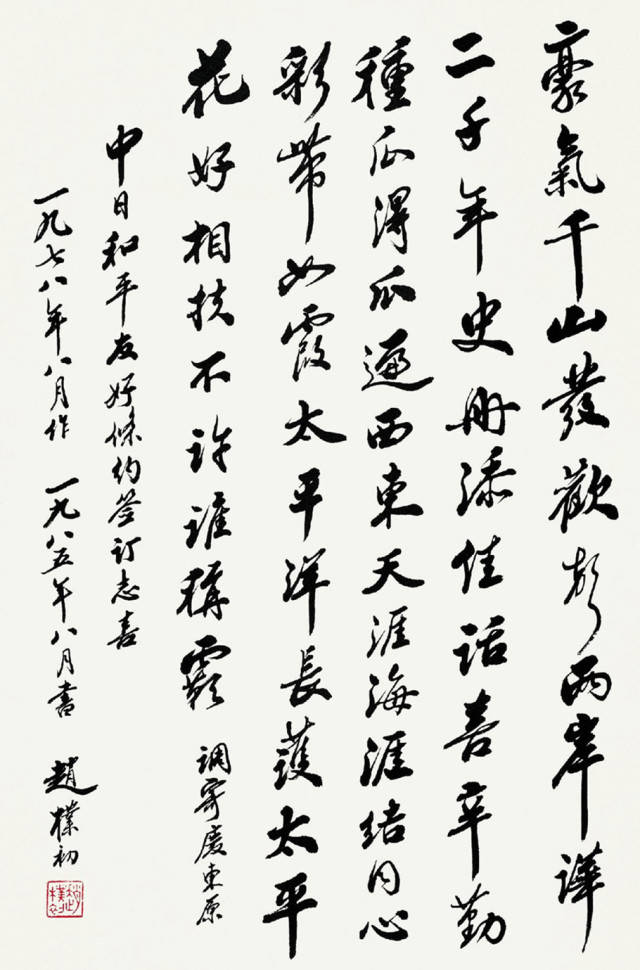 豪氣千山發歡聲兩岸譁
二千年史冊添佳話喜辛勤
種瓜得瓜遍西東天涯海涯結同心
彩帶如霞太平洋長護太平
花好相扶不許誰稱霸 調寄慶東原
中日和平友好條約簽訂志喜
一九七八年八月作 一九八五年八月書 趙樸初